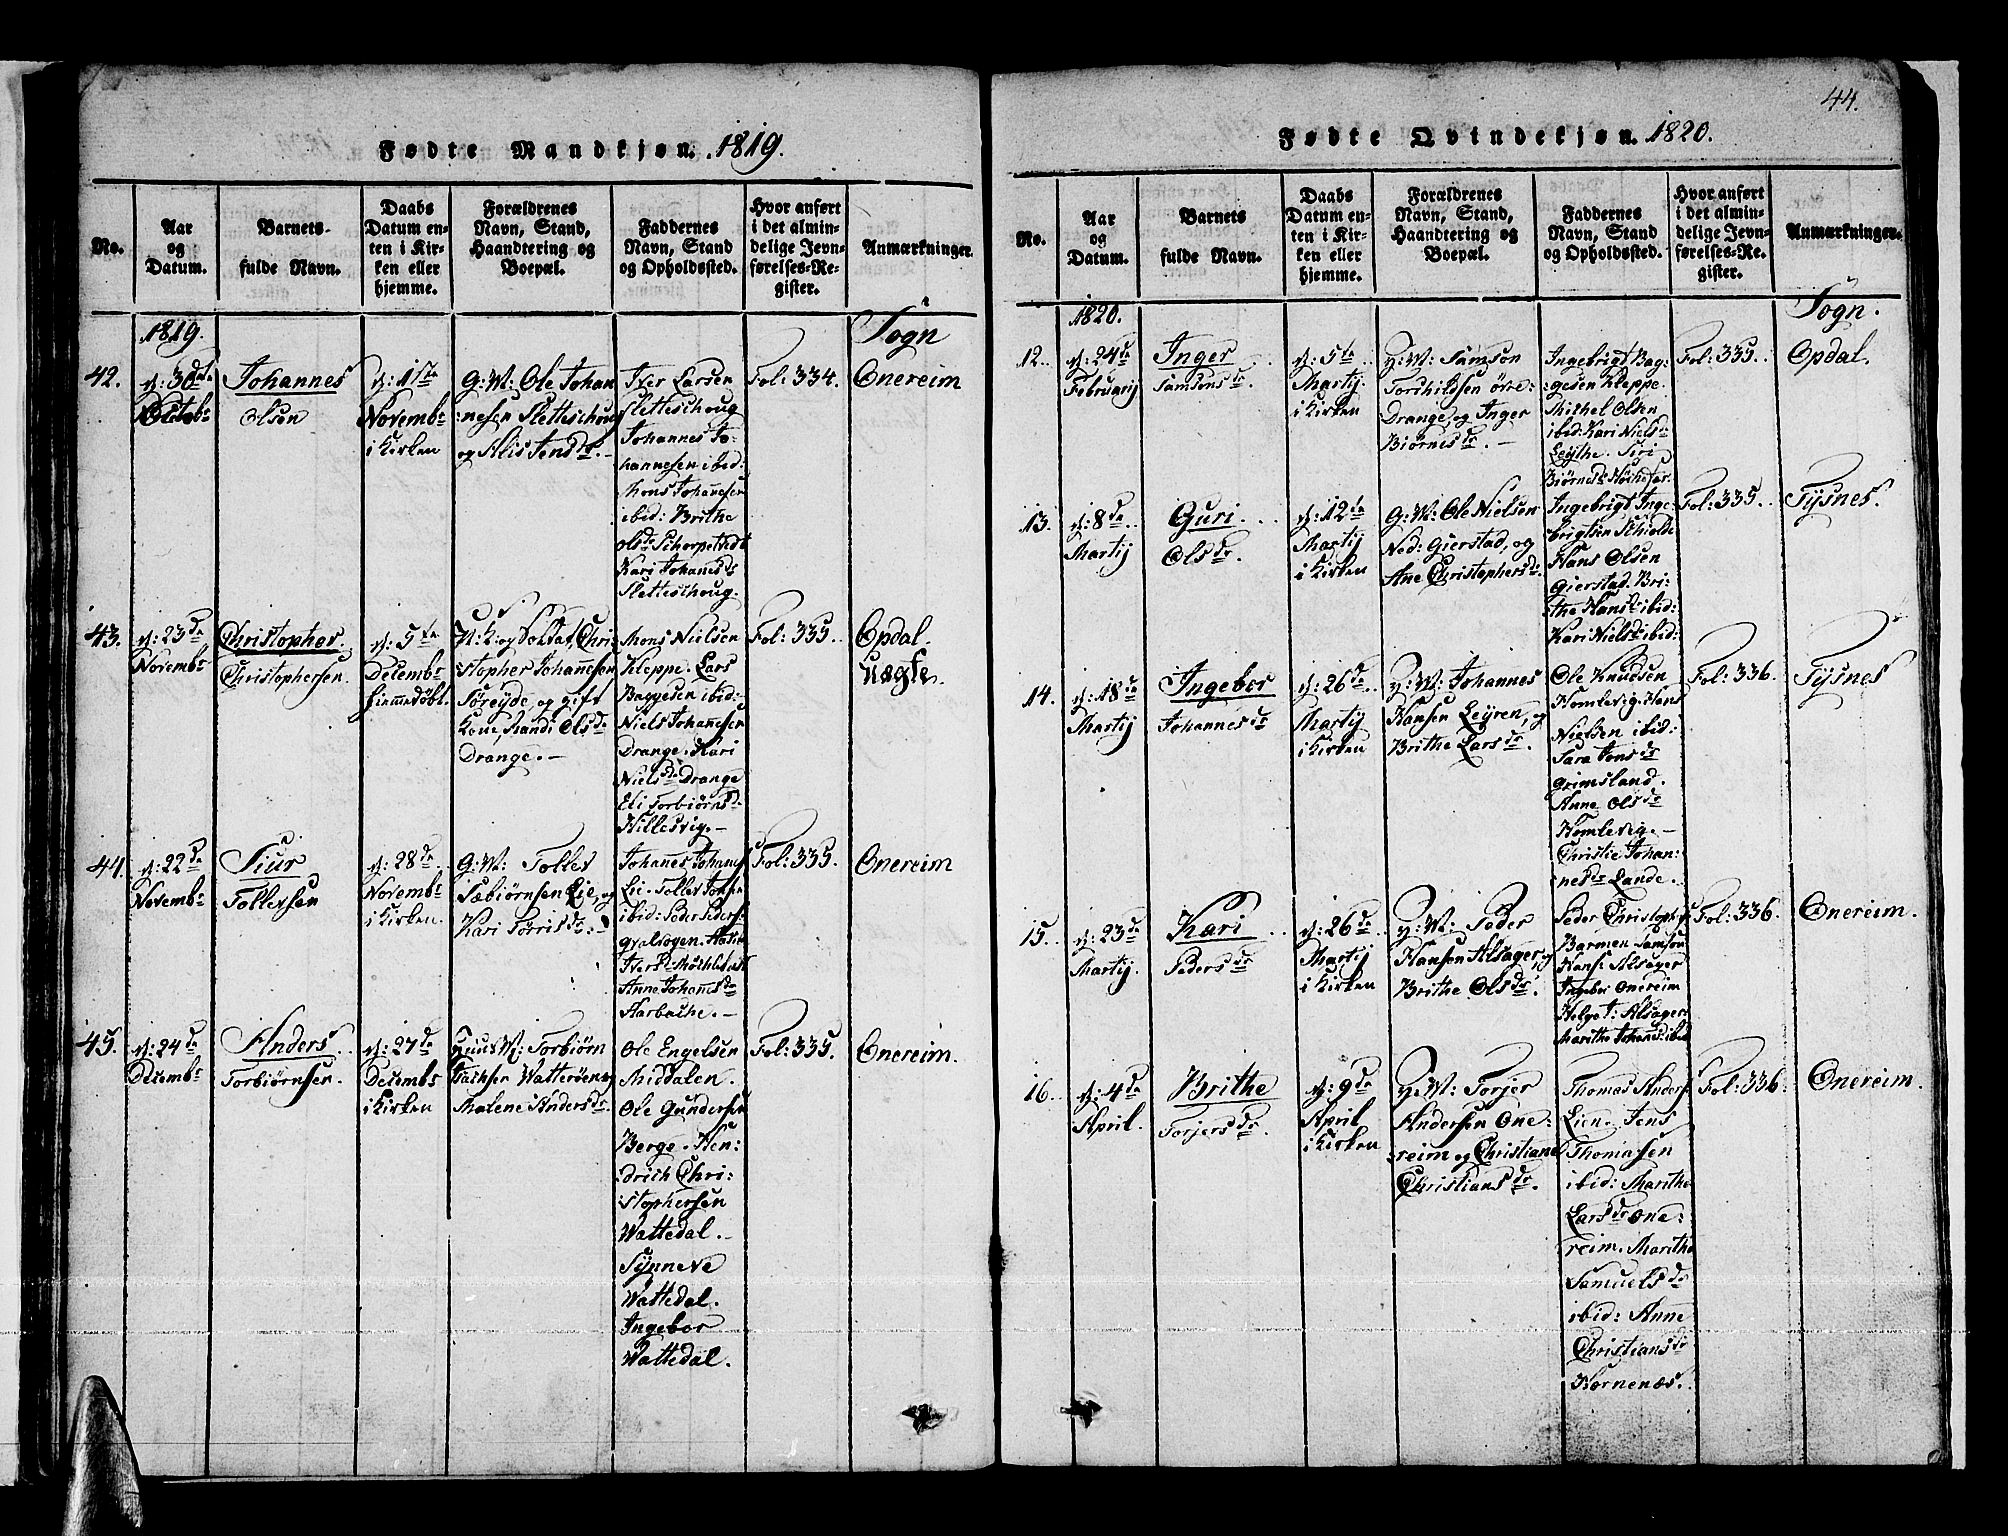 44.
Fødte Mandkjøn. 1819.
No.
Aar
og
Datum.
Barnets
fulde Navn.
Daabs
Datum en-
ten i Kir-
ken eller
hjemme.
Forældrenes
Navn, Stand,
Haandtering og
Boepæl.
Faddernes
Navn, Stand
og Opholdssted.
Hvor anført
i det almin-
delige Jevn-
førelses-Re-
gister.
Anmærkninger.
1819.
Sogn
42.
d: 30
Octobr
Johannes
Olsen
d: 1ste
Novembr
i Kirken
G: M: Ole Johan
:nesen Sletteschoug
og Alis Jensdr. -
Iver Larsen
Sletteschoug
Johannes Jo-
hannesen ibid:
Mons Johannesen
ibid: Brithe
Olsdr
Kari Johansdr
Sletteschoug.
Fol: 334.
Onereim
43.
d: 23de
Novembr
Christopher
Christophersen.
d: 5te
Decembr
hiemmedøbt.
U: K: og Soldat, Chri-
:stopher Johannesen
Søreyde, og gift
Kone, Randi Olsdr
Drange. -
Mons Nielsen
Kleppe. Lars
Baggesen ibid:
Niels Johannesen
Drange. Kari
Nielsdr Drange
Eli Torbiørnsdr
Hillesvig. -
Fol: 335.
Opdal.
Uægte.
44.
d: 22de
Novembr
Siur
Tollevsen
d: 28de
Novembr
i Kirken.
G: M: Tollev
Sæbiørnsen Lie, og
Kari Siørrisdr: -
Johanes Johanes
Lie. Tollev Johan
ibid: Peder Peders:
Anne Johansdr
Aarbache. -
Fol: 335.
Onereim
45.
d: 24de
Decembr
Anders
Torbiørnsen.
d: 27de
Decembr
i Kirken
Huus M: Torbiørn
Isachsen Watterøen og
Malene Andersdr.
Ole Engelsen
Middalen.
Ole Gundersen
Berge. Hen-
drich Chri:
:stophersen
Wattedal. -
Synneve
Wattedal.
Ingebor
Wattedal.
Fol: 335.
Onereim.
Fødte Qvindekjøn. 1820.
No.
Aar
og
Datum.
Barnets
fulde Navn.
Daabs
Datum en-
ten i Kir-
ken eller
hjemme.
Forældrenes
Navn, Stand,
Haandtering og
Boepæl.
Faddernes
Navn, Stand
og Opholdssted.
Hvor anført
i det almin-
delige Jevn-
førelses-Re-
gister.
Anmærkninger.
1820.
Sogn.
12.
d: 24de
Februarij
Inger
Samsonsdr
d: 5te
Martij
i Kirken
G: M: Samson
Torchildsen øvre:
Drange, og Inger
Biørnesdr. -
Ingebrigt Bag-
gesen Kleppe.
Michel Olsen
ibid: Kari Nielsdr
Leythe. Siri
Fol: 335.
Opdal.
13.
d: 8de
Martij
Guri
Olsdr.
d: 12te
Martij
i Kirken
G: M: Ole Nielsen
Ned: Gierstad, og
Ane Christophersdr
Ingebrigt Inge-
brigtsen
Hans Olsen
Gierstad. Bri-
the Hansdr ibid:
Kari Nielsdr ibid:
Fol: 335.
Tysnes.
14.
d: 18de
Martij
Ingebor
Johannesdr
d: 26de
Martij
i Kirken
G: M: Johannes
Hansen Leyren, og
Brithe Larsdr.
Ole Knudsen
Homlevig. Hans
Nielsen ibid:
Sara Jonsdr
Grimsland.
Anne Olsdr
Homlevig. -
Christie Johan-
nesdr Lande.
Fol: 336.
Tysnes
15.
d: 23de
Martij.
Kari
Pedersdr
d: 26de
Martij
i Kirken
G: M: Peder
Hansen Alsager, og
Brithe Olsdr.
Peder Christoph
Barmen Samson
Hans: Alsager
Ingebor Onereim
Helge T: Alsager
Marithe Johansd: ibid
Fol: 336.
Onereim.
16.
d: 4de
April.
Brithe
Torjersdr.
d: 9de
April
i Kirken
G: M: Torjer
Andersen One:
reim og Christiane
Christiansdr.
Thomas Anders
Lien. Jens
Thomasen
ibid: Marithe
Larsdr One:
reim. Marithe
Samuelsdr
ibid: Anne
Christiansdr
Hornenæs.
Fol: 336.
Onereim.